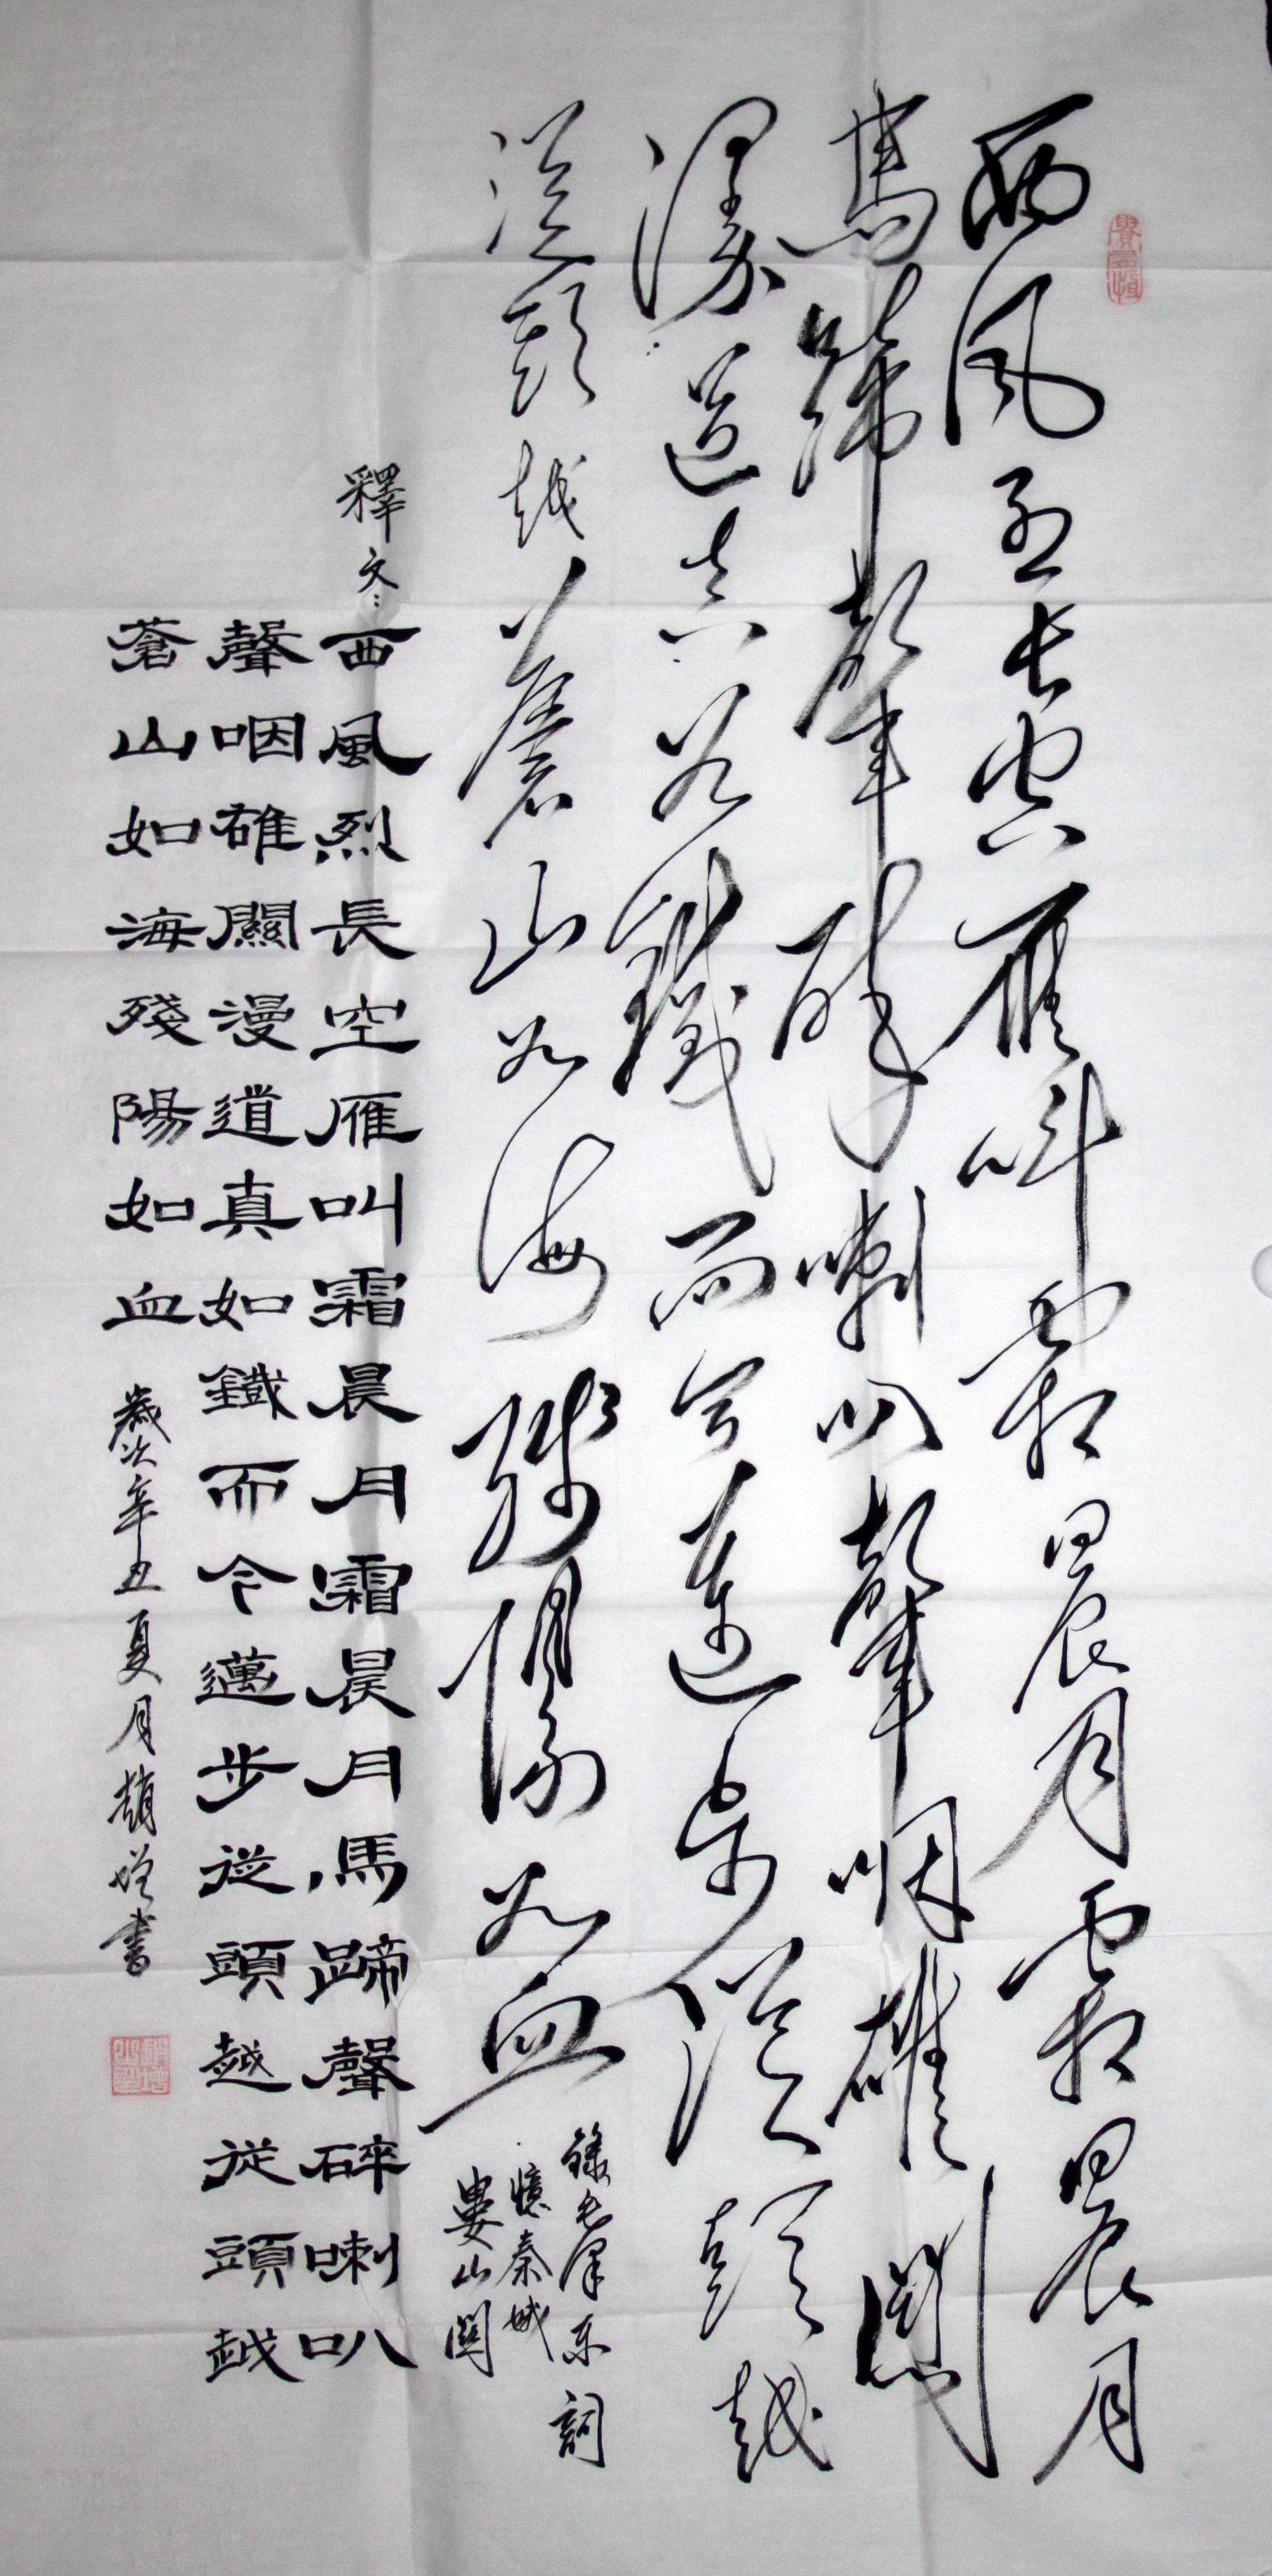 西風烈長空雁叫霜晨月霜晨月
馬蹄聲碎喇叭聲咽雄關
漫道真如鐵而今邁步從頭越
從頭越蒼山如海殘陽如血
錄毛泽东詞
憶秦娥
婁山關
釋文：西風烈長空雁叫霜晨月霜晨月馬蹄聲碎喇叭
聲咽雄關漫道真如鐵而今邁步從頭越從頭越
蒼山如海殘陽如血 歲次辛丑夏月趙增書